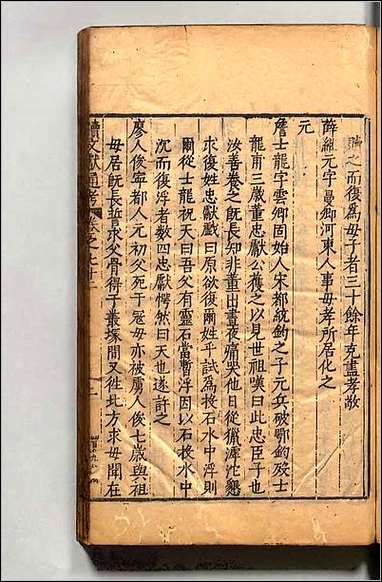 贍之而復為母子者三十餘年克盡孝敬
薛組元字曼卿河東人事母孝所居化之
元
詹士龍字雲卿固始人宋都統鈞之子元兵破鄂鈞歿士
龍甫三歲董忠獻公獲之以見世祖嘆曰此忠臣子也
汝善養之既長知非董出晝夜痛哭他日從獵滹沱懇
求復姓忠獻戲曰原欲復爾姓乎試為接石水中浮則
爾從士龍祝天曰吾父有靈石當暫浮因以石投水中
沉而復浮者數四忠獻愕然曰天也遂許之
廖人俊寧都人元初父死于冦母亦被虜人俊七歲與祖
母居既長誓求父骨得于叢塚間又徃此方求母聞在
續文獻通考 卷之七十二